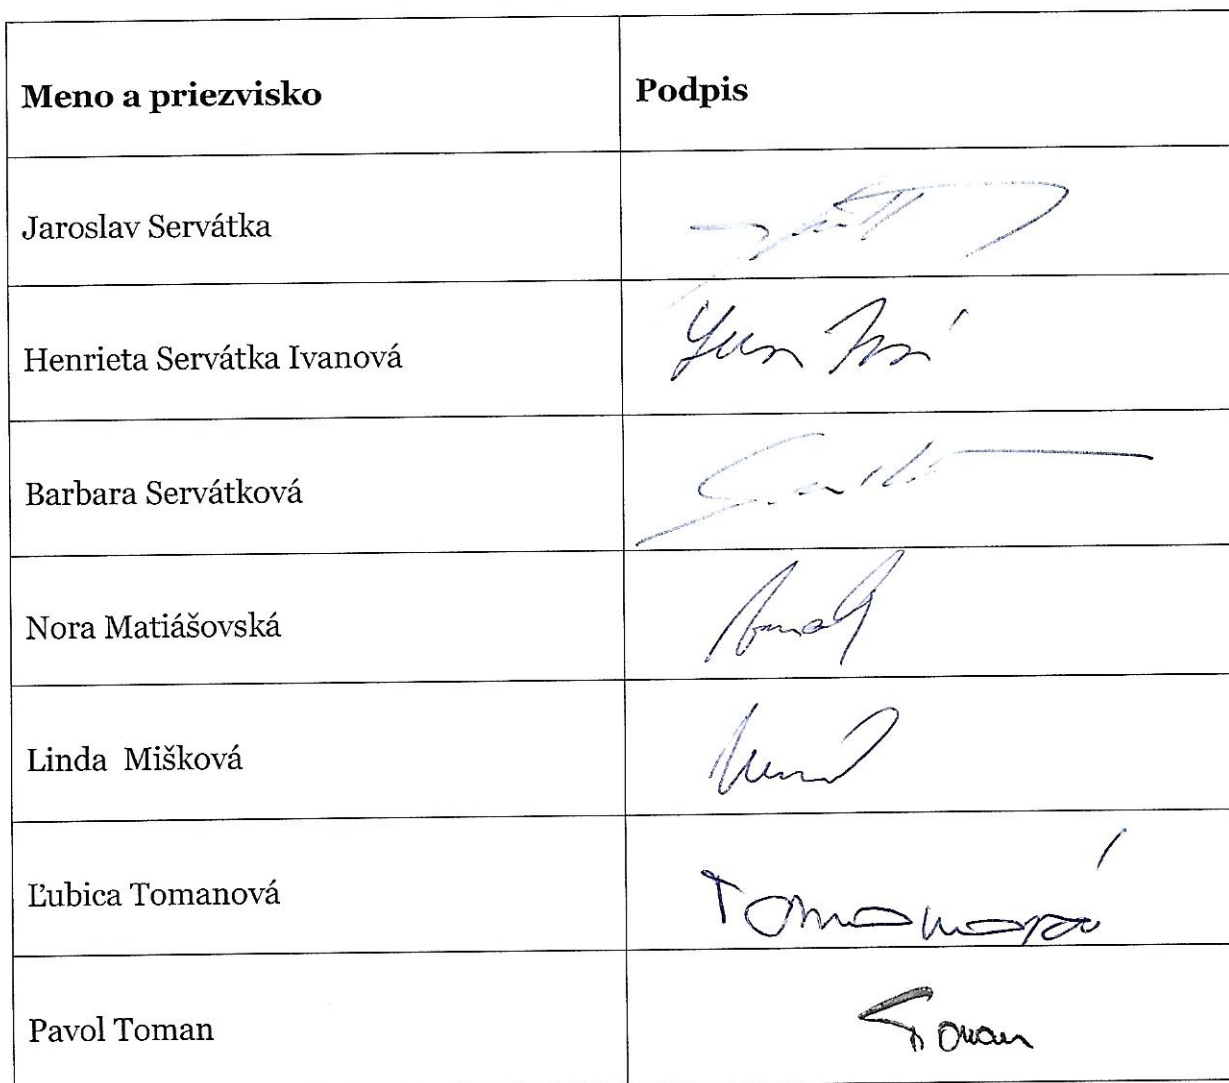 Meno a priezvisko Podpis
Jaroslav Servátka
Henrieta Servátka Ivanová
Barbara Servátková
Nora Matiášovská
Linda  Mišková
Ľubica Tomanová Tomanová
Pavol Toman Toman